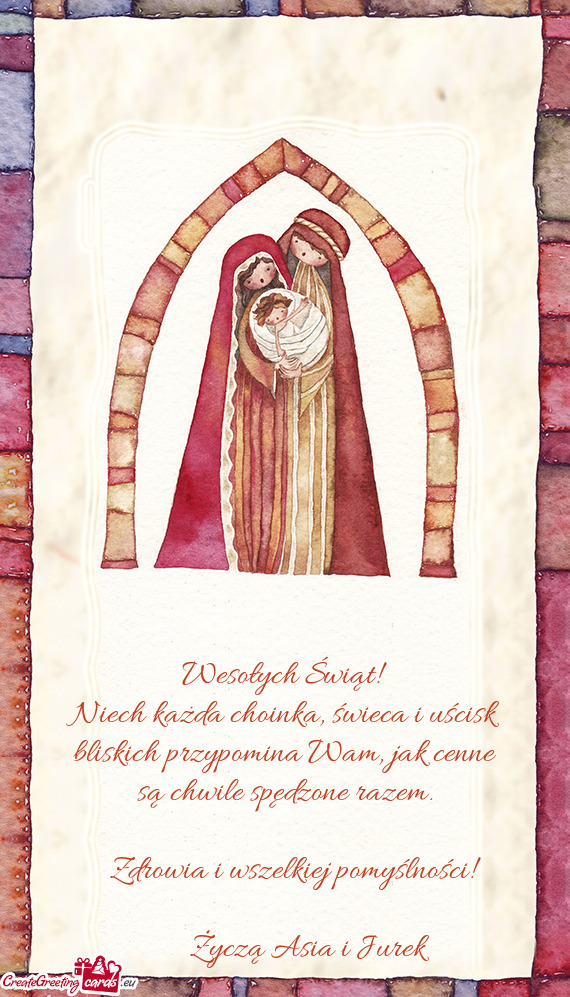 Wesołych Świąt!
Niech każda choinka, świeca i uścisk
bliskich przypomina Wam, jak cenne
są chwile spędzone razem.
Zdrowia i wszelkiej pomyślności!
Życzą Asia i Jurek
CreateGreeting cards .eu